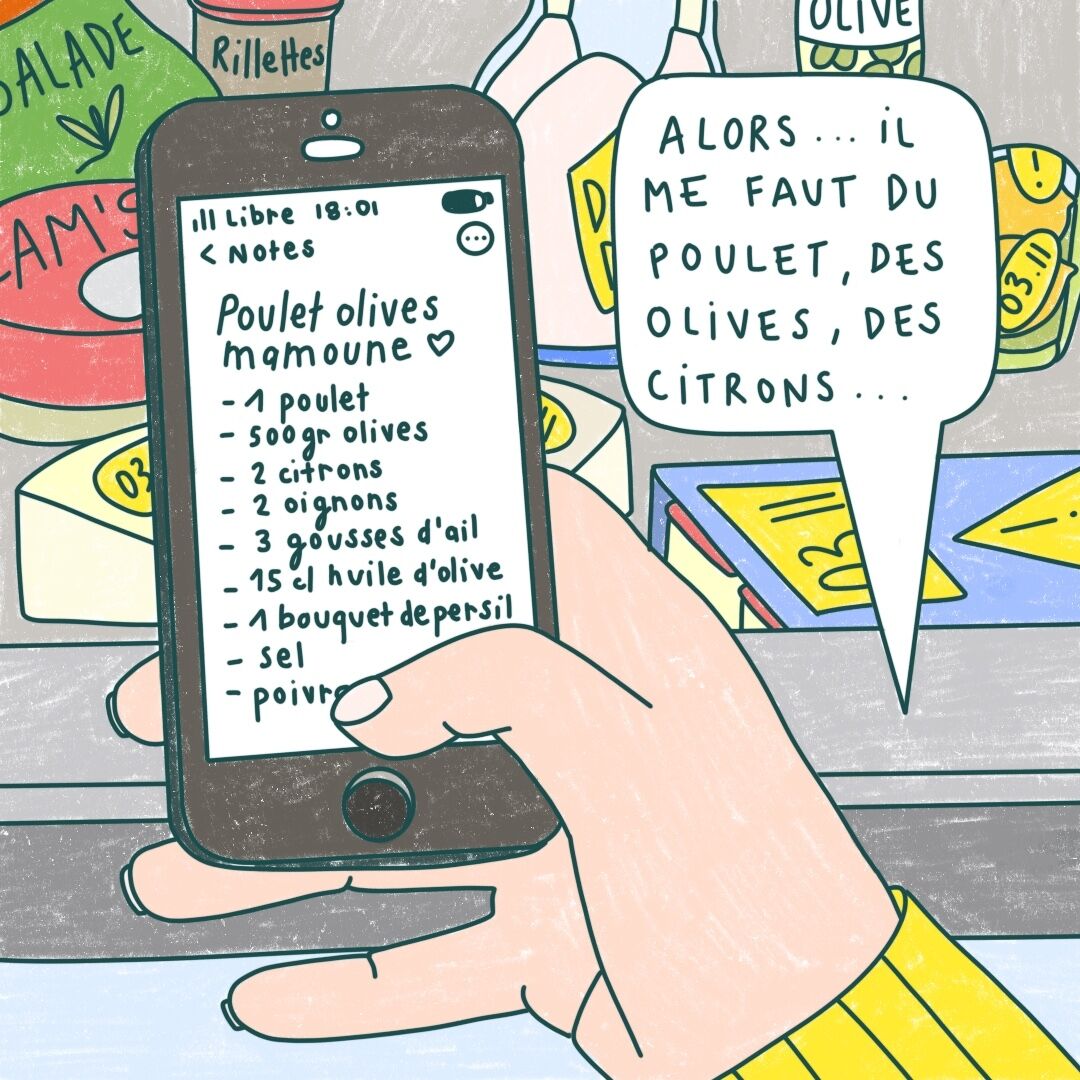 SALADE
Rillettes
OLIVE
CAM'S
ıll Libre 18:01
< Notes
Poulet olives
mamoune ♡
- 1 poulet
- 500gr olives
- 2 citrons
- 2 oignons
- 3 gousses d'ail
- 15 cl huile d'olive
- 1 bouquet de persil
- sel
- poivre
ALORS... iL
ME FAUT DU
POULET, DES
OLiVES, DES
CiTRONS...
!
03.11
03